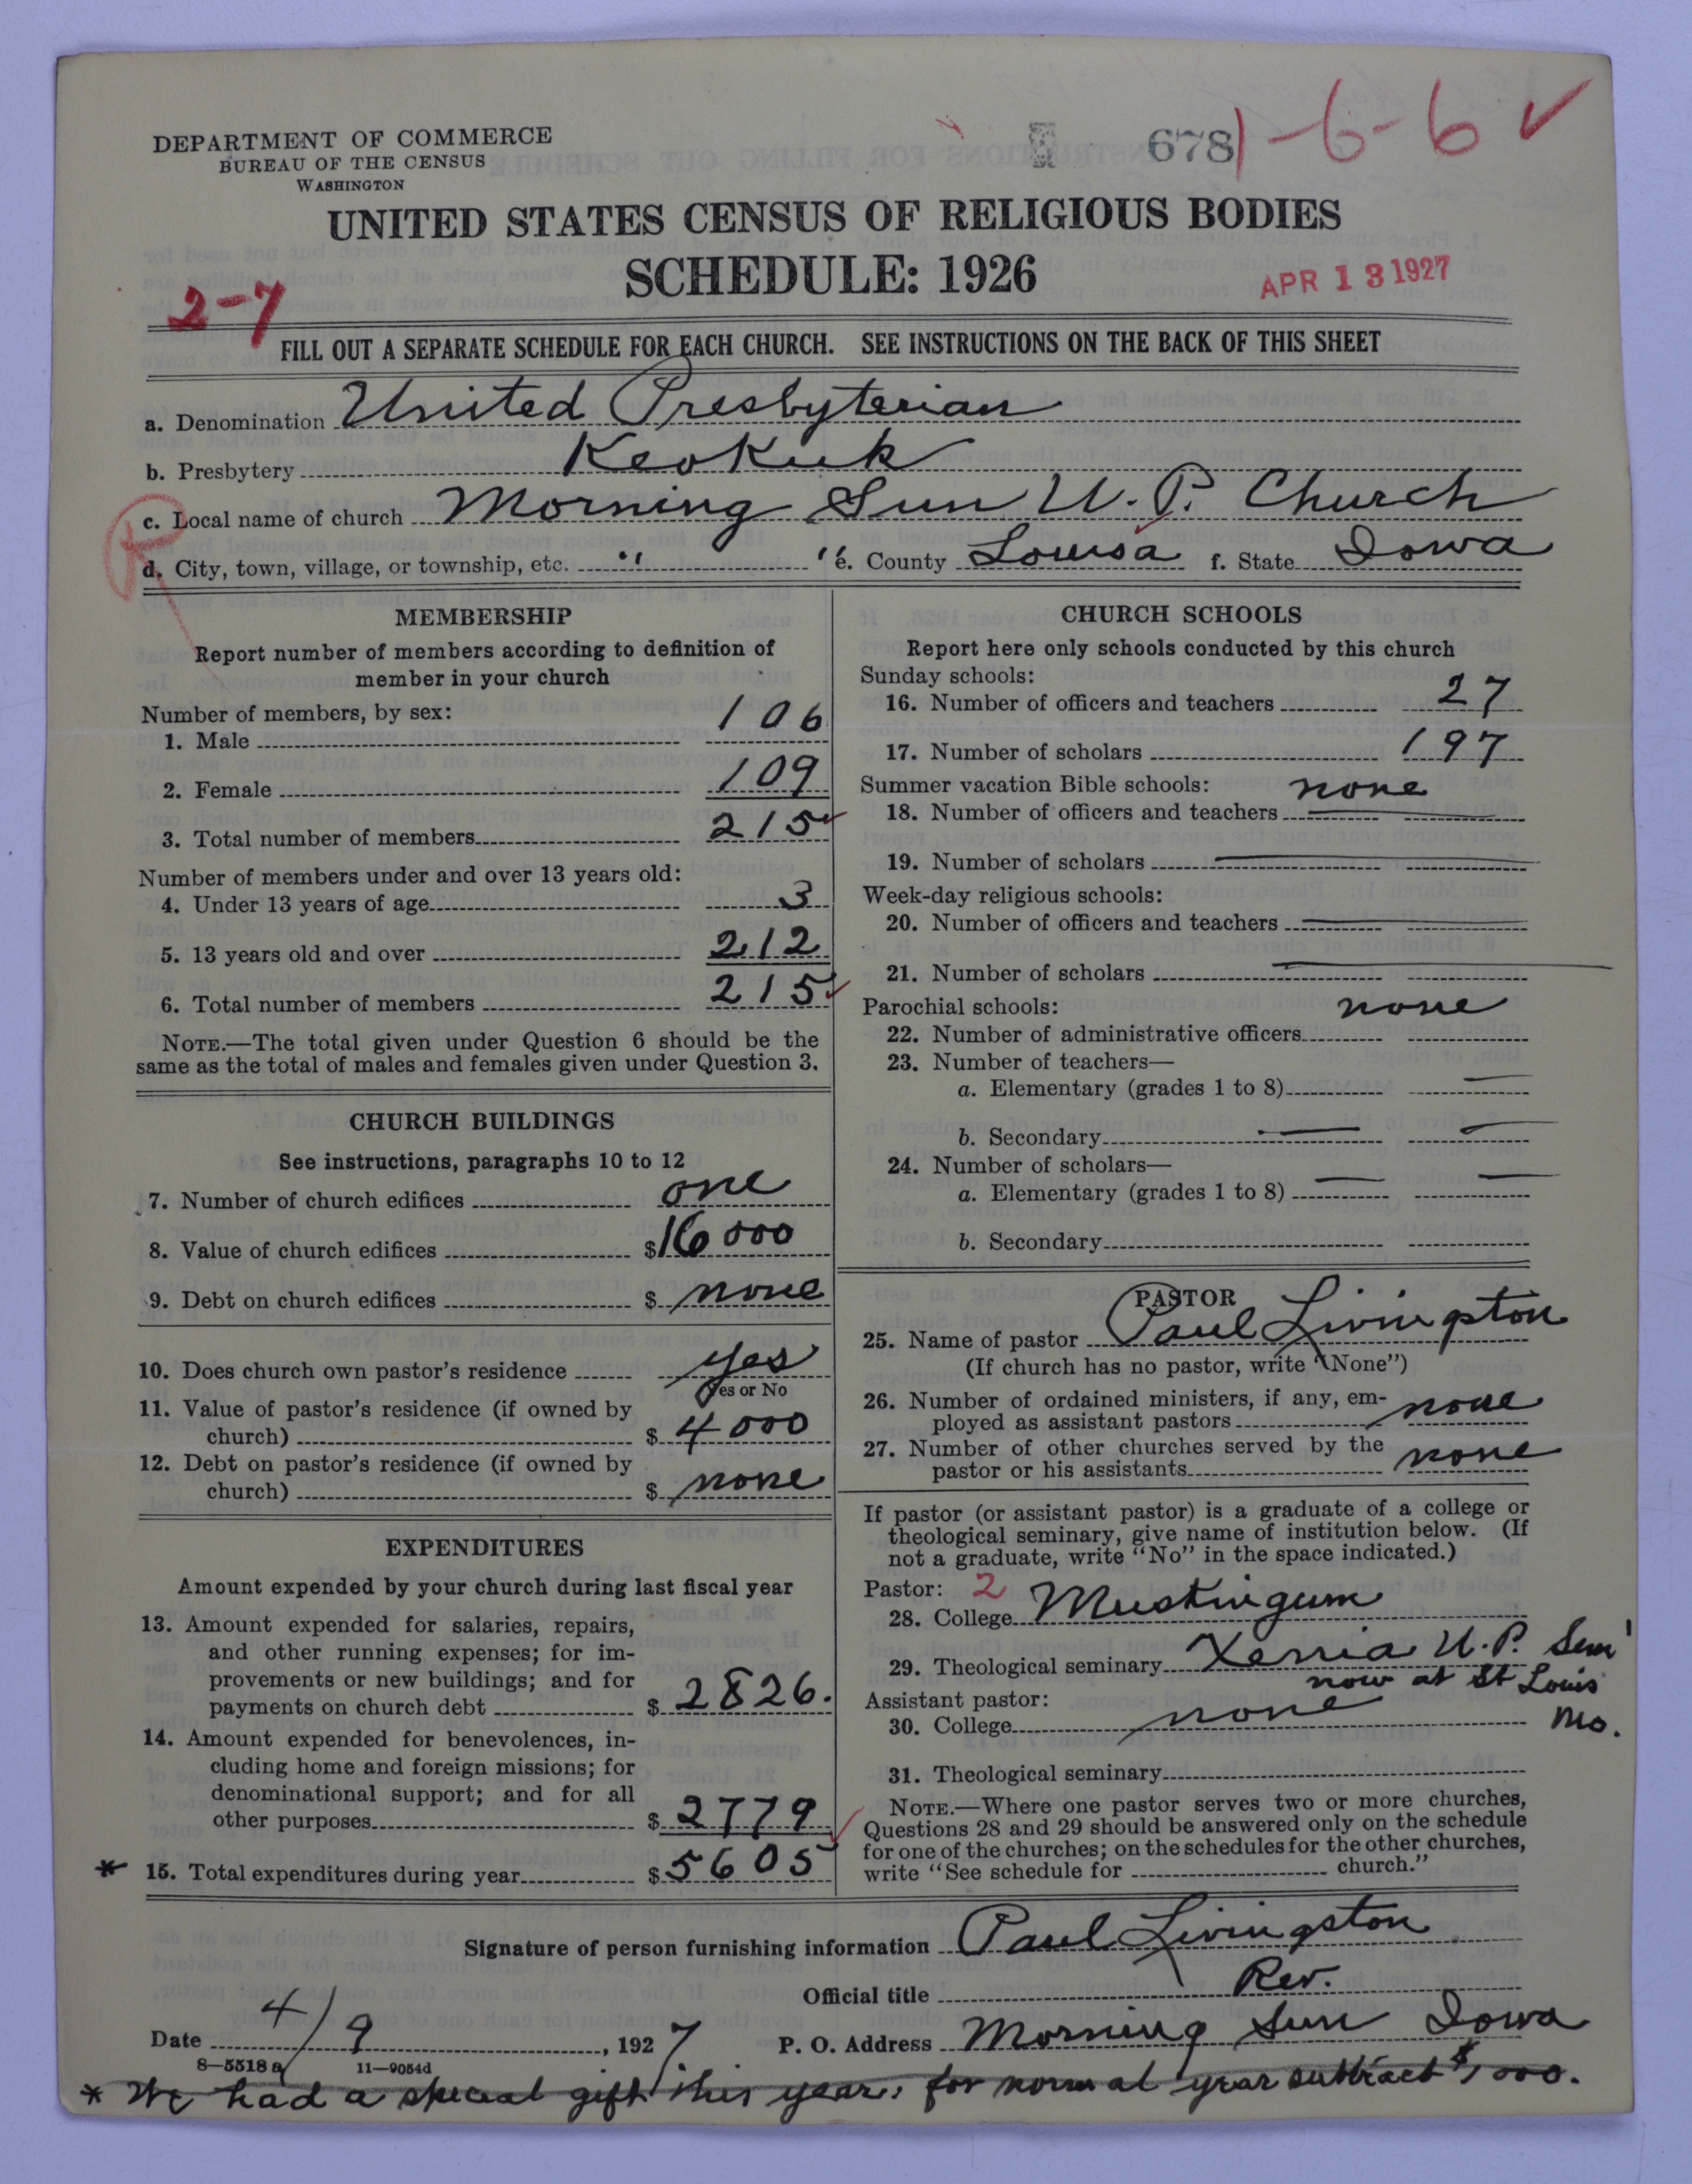 DEPARTMENT OF COMMERCE
BUREAU OF THE CENSUS
WASHINGTON
678
1-6-6 ✓
UNITED STATES CENSUS OF RELIGIOUS BODIES
SCHEDULE: 1926
APR 13 1927
2-7
FILL OUT A SEPARATE SCHEDULE FOR EACH CHURCH. SEE INSTRUCTIONS ON THE BACK OF THIS SHEET
a. Denomination United Presbyterian
b. Presbytery Keokuk
c. Local name of church Morning Sun U.P. Church
R
d. City, town, village, or township, etc. " " e. County Louisa f. State Iowa
MEMBERSHIP
Report number of members according to definition of
member in your church
Number of members, by sex:
1. Male 106
2. Female 109
3. Total number of members 215 ✓
Number of members under and over 13 years old:
4. Under 13 years of age 3
5. 13 years old and over 212
6. Total number of members 215 ✓
NOTE.—The total given under Question 6 should be the
same as the total of males and females given under Question 3.
CHURCH BUILDINGS
See instructions, paragraphs 10 to 12
7. Number of church edifices one
8. Value of church edifices $16000
9. Debt on church edifices $ none
10. Does church own pastor's residence yes
Yes or No
11. Value of pastor's residence (if owned by
church) $ 4000
12. Debt on pastor's residence (if owned by
church) $ none
EXPENDITURES
Amount expended by your church during last fiscal year
13. Amount expended for salaries, repairs,
and other running expenses; for im-
provements or new buildings; and for
payments on church debt $ 2826.
14. Amount expended for benevolences, in-
cluding home and foreign missions; for
denominational support; and for all
other purposes $ 2779 ✓
* 15. Total expenditures during year $5605
CHURCH SCHOOLS
Report here only schools conducted by this church
Sunday schools:
16. Number of officers and teachers 27
17. Number of scholars 197
Summer vacation Bible schools: none
18. Number of officers and teachers
19. Number of scholars
Week-day religious schools:
20. Number of officers and teachers
21. Number of scholars
Parochial schools: none
22. Number of administrative officers
23. Number of teachers—
a. Elementary (grades 1 to 8)
b. Secondary
24. Number of scholars—
a. Elementary (grades 1 to 8)
b. Secondary
PASTOR
25. Name of pastor Paul Livingston
(If church has no pastor, write "None")
26. Number of ordained ministers, if any, em-
ployed as assistant pastors none
27. Number of other churches served by the
pastor or his assistants none
If pastor (or assistant pastor) is a graduate of a college or
theological seminary, give name of institution below. (If
not a graduate, write "No" in the space indicated.)
Pastor: 2
28. College Muskingum
29. Theological seminary Xenia U.P. Sem'
now at St Louis
Mo.
Assistant pastor:
30. College none
31. Theological seminary
NOTE.—Where one pastor serves two or more churches,
Questions 28 and 29 should be answered only on the schedule
for one of the churches; on the schedules for the other churches,
write "See schedule for church."
Signature of person furnishing information Paul Livingston
Official title Rev.
Date 4/9, 1927 P. O. Address Morning Sun Iowa
8—5518 a 11—9054d
* We had a special gift this year. for normal year subtract $1000.